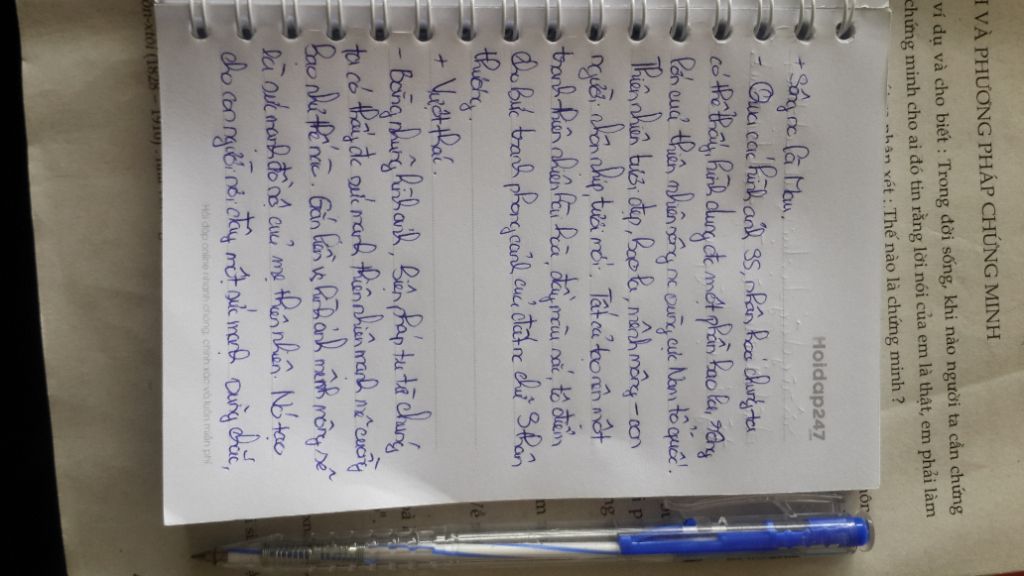 H VÀ PHƯƠNG PHÁP CHỨNG MINH
ví dụ và cho biết : Trong đời sống, khi nào người ta cần chứng
chứng minh cho ai đó tin rằng lời nói của em là thật, em phải làm
nhận xét : Thế nào là chứng minh ?
Hoidap247
+ Sông nc Cà Mau
- Qua các hình ảnh SS, nhân hoá chúng ta
có thể thấy, hình dung đc một phần bao la, rộng
lớn của thiên nhiên sông nc vùng cực Nam tổ quốc.
Thiên nhiên tươi đẹp, bao la, mênh mông - con
người nhộn nhịp, tươi mới. Tất cả tạo nên một
tranh thiên nhiên hài hoà, đầy màu sắc, tô điểm
cho bức tranh phong cảnh của đất nc chữ S thân
thương.
+ Vượt thác.
- Bằng những hình ảnh, biện pháp tu từ chúng
ta có thấy đc sức mạnh thiên nhiên mạnh mẽ cường
bạo như thế nào. Gắn liền vs hình ảnh mênh mông, sẽ
là sức mạnh đồ sộ của mẹ thiên nhiên. Nó tạo
cho con người nơi đây một sức mạnh cường tráng,
Hỏi đáp online nhanh chóng, chính xác và luôn miễn phí
1828 - 1910)